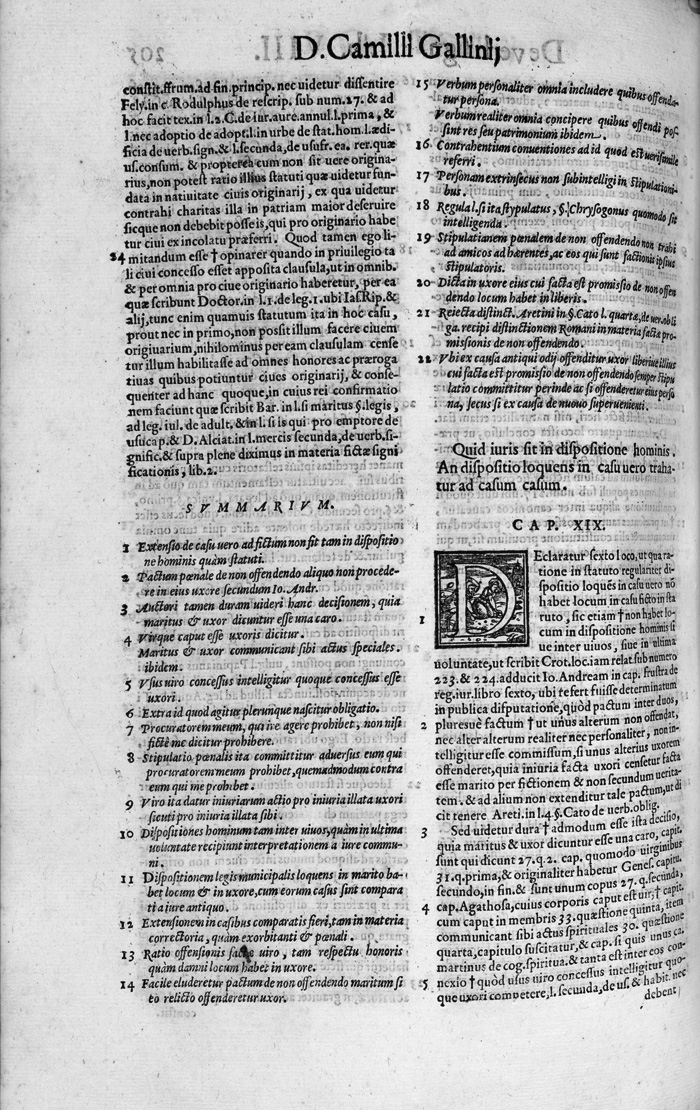 D. Camilli Gallinij
constit. ffrum. ad fin. princip. nec uidetur dissentire
Fely. in c. Rodulphus de rescrip. sub num. 27. & ad
hoc facit tex. in l. 2. C. de iur. aure. annul. l. prima, &
l. nec adoptio de adopt. l. in urbe de stat. hom. l. ædi-
ficia de uerb. sign. & l. secunda, de usufr. ea. rer. quæ
us. consum. & propterea cum non sit uere origina-
rius, non potest ratio illius statuti quæ uidetur fun-
data in natiuitate ciuis originarij, ex qua uidetur
contrahi charitas illa in patriam maior deseruire
sicque non debebit posseis, qui pro originario habe
tur ciui ex incolatu præferri. Quod tamen ego li-
24 mitandum esse † opinarer quando in priuilegio ta
li ciui concesso esset apposita clausula, ut in omnib.
& per omnia pro ciue originario haberetur, per ea
quæ scribunt Doctor. in l. 1. de leg. 1. ubi Ias. Rip. &
alij, tunc enim quamuis statutum ita in hoc casu,
prout nec in primo, non possit illum facere ciuem
origiuarium, nihilominus per eam clausulam cense
tur illum habilitasse ad omnes honores ac præroga
tiuas quibus potiuntur ciues originarij, & conse-
quenter ad hanc quoque, in cuius rei confirmatio
nem faciunt quæ scribit Bar. in l. si maritus §. legis,
ad leg. iul. de adult. & in l. si is qui pro emptore de
usucap. & D. Alciat. in l. mercis secunda, de uerb. si-
gnific. & supra plene diximus in materia fictæ signi
ficationis, lib. 2.
SVMMARIVM.
1 Extensio de casu uero ad fictum non fit tam in dispositio
ne hominis quàm statuti.
2 Pactum pœnale de non offendendo aliquo non procede-
re in eius uxore secundum Io. Andr.
3 Auctori tamen duram uideri hanc decisionem, quia
maritus & uxor dicuntur esse una caro.
4 Virque caput esse uxoris dicitur.
Maritus & uxor communicant sibi actus speciales.
ibidem.
5 Vsus uiro concessus intelligitur quoque concessus esse
uxori.
6 Extra id quod agitur plerunque nascitur obligatio.
7 Procuratorem meum, qui ire agere prohibet, non nisi
fictè me dicitur prohibere.
8 Stipulatio pœnalis ita committitur aduersus eum qui
procuratorem meum prohibet, quemadmodum contra
eum qui me prohibet.
9 Viro ita datur iniuriarum actio pro iniuria illata uxori
sicuti pro iniuria illata sibi.
10 Dispositiones hominum tam inter uiuos, quàm in ultima
uoluntate recipiunt interpretationem a iure commu-
ni.
11 Dispositionem legis municipalis loquens in marito ha-
bet locum & in uxore, cum eorum casus sint compara
ti a iure antiquo.
12 Extensionem in casibus comparatis fieri, tam in materia
correctoria, quàm exorbitanti & pœnali.
13 Ratio offensionis factæ uiro, tam respectu honoris
quàm damni locum habet in uxore.
14 Facile eluderetur pactum de non offendendo maritum si
eo relicto offenderetur uxor.
15 Verbum personaliter omnia includere quibus offenda-
tur persona.
Verbum realiter omnia concipere quibus offendi pos-
sint res seu patrimonium ibidem.
16 Contrahentium conuentiones ad id quod est uerisimile
referri.
17 Personam extrinsecus non subintelligi in stipulationi-
bus.
18 Regula l. si ita stypulatus, §. Chrysogonus quomodo sit
intelligenda.
19 Stipulatianem pœnalem de non offendendo non trahi
ad amicos ad hærentes, ac eos qui sunt factionis ipsius
stipulatoris.
20 Dicta in uxore eius cui facta est promissio de non offen
dendo locum habet in liberis.
21 Reiecta distinct. Aretini in §. Cato l. quartæ, de uer. obli
ga. recipi distinctionem Romani in materia facta pro-
missionis de non offendendo.
22 Vbi ex causa antiqui odij offenditur uxor liberiue illius
cui facta est promissio de non offendendo semper stipu
latio committitur perinde ac si offenderetur eius perso
na, secus si ex causa de nouo superuenienti.
Quid iuris sit in dispositione hominis.
An dispositio loquens in casu uero traha-
tur ad casum casum.
CAP. XIX.
DEclaratur sexto loco, ut qua ra-
tione in statuto regulariter di-
spositio loquēs in casu uero nō
habet locum in casu ficto in sta
tuto, sic etiam † non habet lo-
1 cum in dispositione hominis si
ue inter uiuos, siue in ultima
uoluntate, ut scribit Crot. loc. iam relat. sub numero
223. & 224. adducit Io. Andream in cap. frustra de
reg. iur. libro sexto, ubi tefert fuisse determinatum
in publica disputatione, quòd pactum inter duos,
2 pluresuè factum † ut unus alterum non offendat,
nec alter alterum realiter nec personaliter, non in-
telligitur esse commissum, si unus alterius uxorem
offenderet, quia iniuria facta uxori censetur facta
esse marito per fictionem & non secundum uerita-
tem. & ad alium non extenditur tale pactum, ut di
cit tenere Areti. in l. 4. §. Cato de uerb. oblig.
3 Sed uidetur dura † admodum esse ista decisio,
quia maritus & uxor dicuntur esse una caro, capit.
sunt qui dicunt 27. q. 2. cap. quomodo uirginibus
31. q. prima, & originaliter habetur Genes. capitu.
secundo, in fin. & sunt unum copus 27. q. secunda,
4 cap. Agathosa, cuius corporis caput est uir, † capit.
cum caput in membris 33. quæstione quinta, item
communicant sibi actus spirituales 30. quæstione
quarta, capitulo suscitatur, & cap. si quis unus ca.
martinus de cog. spiritua. & tanta est inter eos con-
5 nexio † quòd usus uiro concessus intelligitur quo-
que uxori competere, l. secunda, de us. & habit. nec
debent